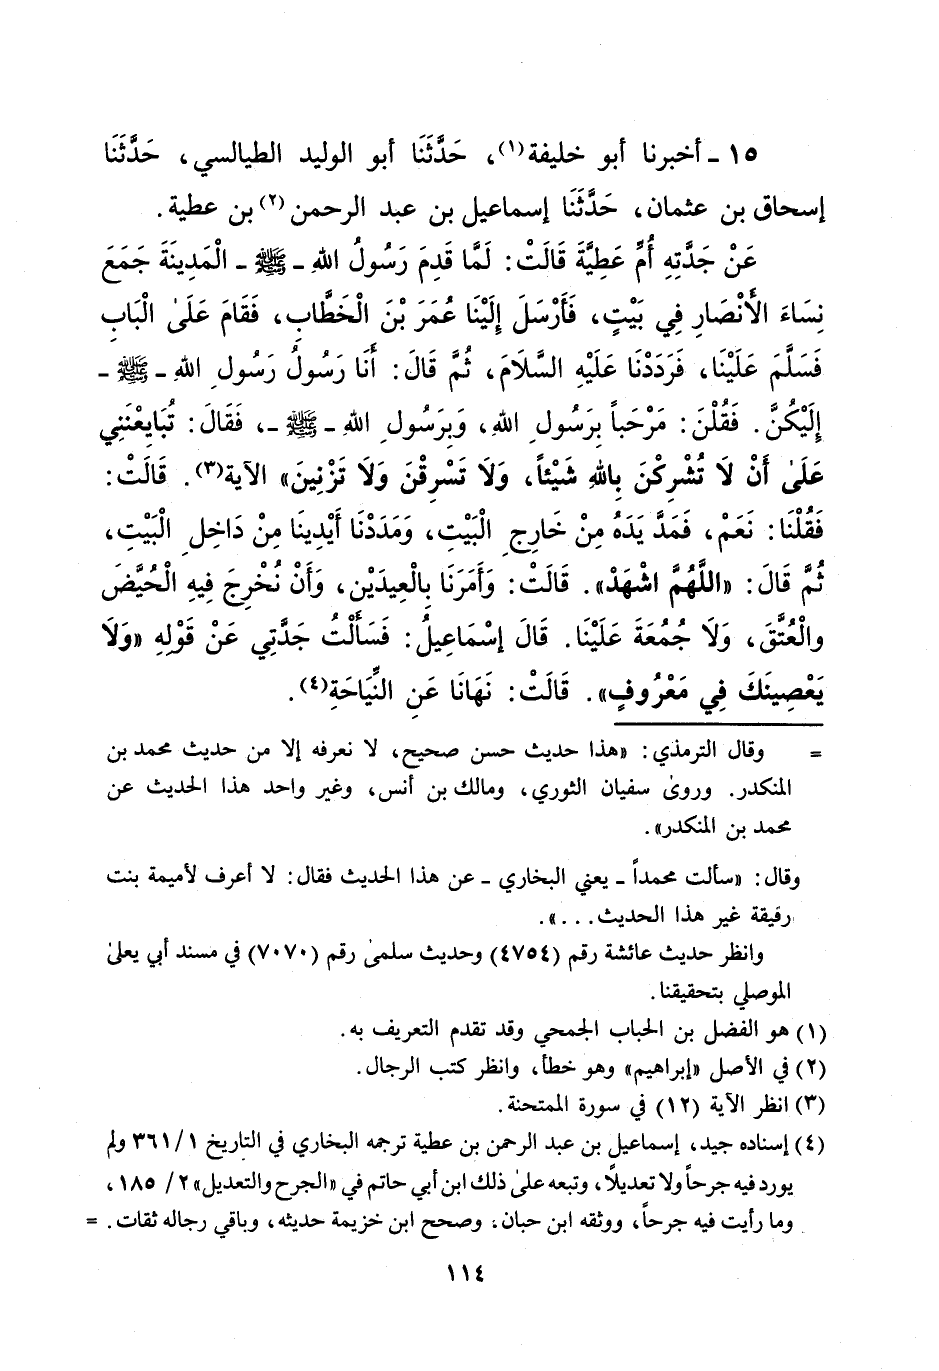 ١٥ - أخبرنا أبو خليفة(١)، حَدَّثَنَا أبو الوليد الطيالسي، حَدَّثَنَا
إسحاق بن عثمان، حَدَّثَنَا إسماعيل بن عبد الرحمن(٢) بن عطية.
عَنْ جَدَّتِهِ أُمِّ عَطِيَّةَ قَالَتْ: لَمَّا قَدِمَ رَسُولُ اللهِ - ﷺ - الْمَدِينَةَ جَمَعَ
نِسَاءَ الأَنْصَارِ فِي بَيْتٍ، فَأَرْسَلَ إِلَيْنَا عُمَرَ بْنَ الْخَطَّابِ، فَقَامَ عَلَىٰ الْبَابِ
فَسَلَّمَ عَلَيْنَا، فَرَدَدْنَا عَلَيْهِ السَّلَامَ، ثُمَّ قَالَ: أَنَا رَسُولُ رَسُولِ اللهِ - ﷺ -
إِلَيْكُنَّ. فَقُلْنَ: مَرْحَباً بِرَسُولِ اللهِ، وَبِرَسُولِ اللهِ - ﷺ -، فَقَالَ: تُبَايِعْنَنِي
عَلَىٰ أَنْ لَا تُشْرِكْنَ بِاللهِ شَيْئاً، وَلَا تَسْرِقْنَ وَلَا تَزْنِينَ» الآية(٣). قَالَتْ:
فَقُلْنَا: نَعَمْ، فَمَدَّ يَدَهُ مِنْ خَارِجِ الْبَيْتِ، وَمَدَدْنَا أَيْدِينَا مِنْ دَاخِلِ الْبَيْتِ،
ثُمَّ قَالَ: «اللَّهُمَّ اشْهَدْ». قَالَتْ: وَأَمَرَنَا بِالْعِيدَيْنِ، وَأَنْ نُخْرِجَ فِيهِ الْحُيَّضَ
والْعُتَّقَ، وَلَا جُمُعَةَ عَلَيْنَا. قَالَ إِسْمَاعِيلُ: فَسَأَلْتُ جَدَّتِي عَنْ قَوْلِهِ «وَلَا
يَعْصِينَكَ فِي مَعْرُوفٍ». قَالَتْ: نَهَانَا عَنِ النِّيَاحَةِ(٤).
= وقال الترمذي: «هذا حديث حسن صحيح، لا نعرفه إلا من حديث محمد بن
المنكدر. وروىٰ سفيان الثوري، ومالك بن أنس، وغير واحد هذا الحديث عن
محمد بن المنكدر».
وقال: «سألت محمداً - يعني البخاري - عن هذا الحديث فقال: لا أعرف لأميمة بنت
رقيقة غير هذا الحديث...».
وانظر حديث عائشة رقم (٤٧٥٤) وحديث سلمىٰ رقم (٧٠٧٠) في مسند أبي يعلىٰ
الموصلي بتحقيقنا.
(١) هو الفضل بن الحباب الجمحي وقد تقدم التعريف به.
(٢) في الأصل «إبراهيم» وهو خطأ، وانظر كتب الرجال.
(٣) انظر الآية (١٢) في سورة الممتحنة.
(٤) إسناده جيد، إسماعيل بن عبد الرحمن بن عطية ترجمه البخاري في التاريخ ١/ ٣٦١ ولم
يورد فيه جرحاً ولا تعديلاً، وتبعه علىٰ ذلك ابن أبي حاتم في «الجرح والتعديل» ٢/ ١٨٥،
وما رأيت فيه جرحاً، ووثقه ابن حبان، وصحح ابن خزيمة حديثه، وباقي رجاله ثقات. =
١١٤